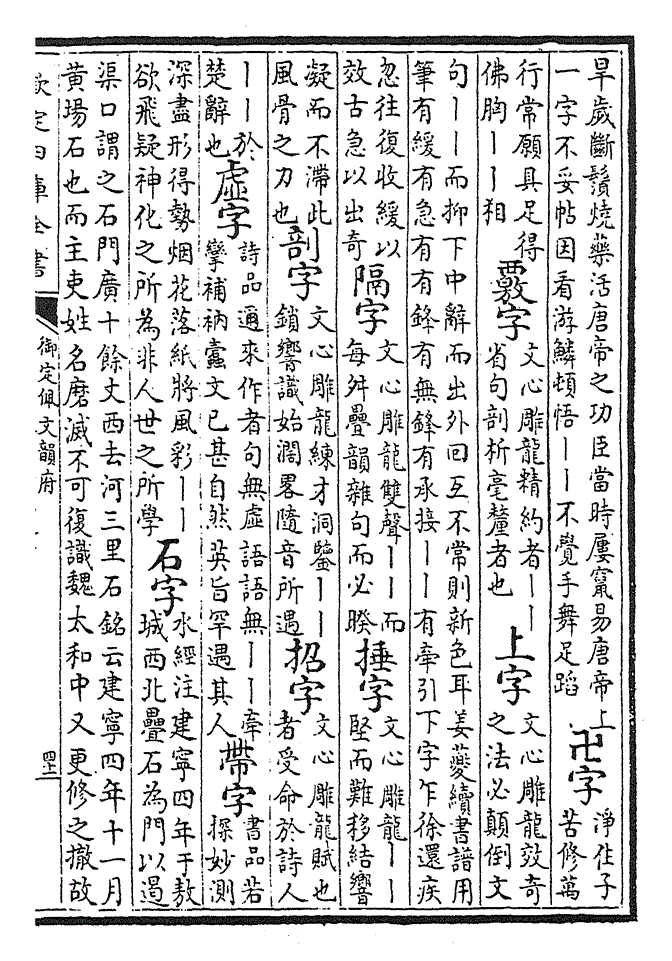 旱歲斷鬚燒藥活唐帝之功臣當時屢竄易唐帝上
一字不妥帖因看游鱗頓悟丨丨不覺手舞足蹈
卍字
淨住子
苦修萬
行常願具足得
佛胸丨丨相
覈字
文心雕龍精約者丨丨
省句剖析毫釐者也
上字
文心雕龍效奇
之法必顛倒文
句丨丨而抑下中辭而出外回互不常則新色耳姜夔續書譜用
筆有緩有急有有鋒有無鋒有承接丨丨有牽引下字乍徐還疾
忽往復收緩以
效古急以出奇
隔字
文心雕龍雙聲丨丨而
每舛疊韻雜句而必睽
捶字
文心雕龍丨丨
堅而難移結響
凝而不滯此
風骨之刀也
剖字
文心雕龍練才洞鑒丨丨
鎖響識始濶畧隨音所遇
招字
文心雕龍賦也
者受命於詩人
丨丨於
楚辭也
虛字
詩品邇來作者句無虛語語無丨丨牽
攣補衲蠹文已甚自然英旨罕遇其人
帶字
書品若
探妙測
深盡形得勢烟花落紙將風彩丨丨
欲飛疑神化之所為非人世之所學
石字
水經注建寧四年于敖
城西北疊石為門以遏
渠口謂之石門廣十餘丈西去河三里石銘云建寧四年十一月
黄場石也而主吏姓名磨滅不可復識魏太和中又更修之撤故
欽定四庫全書
御定佩文韻府